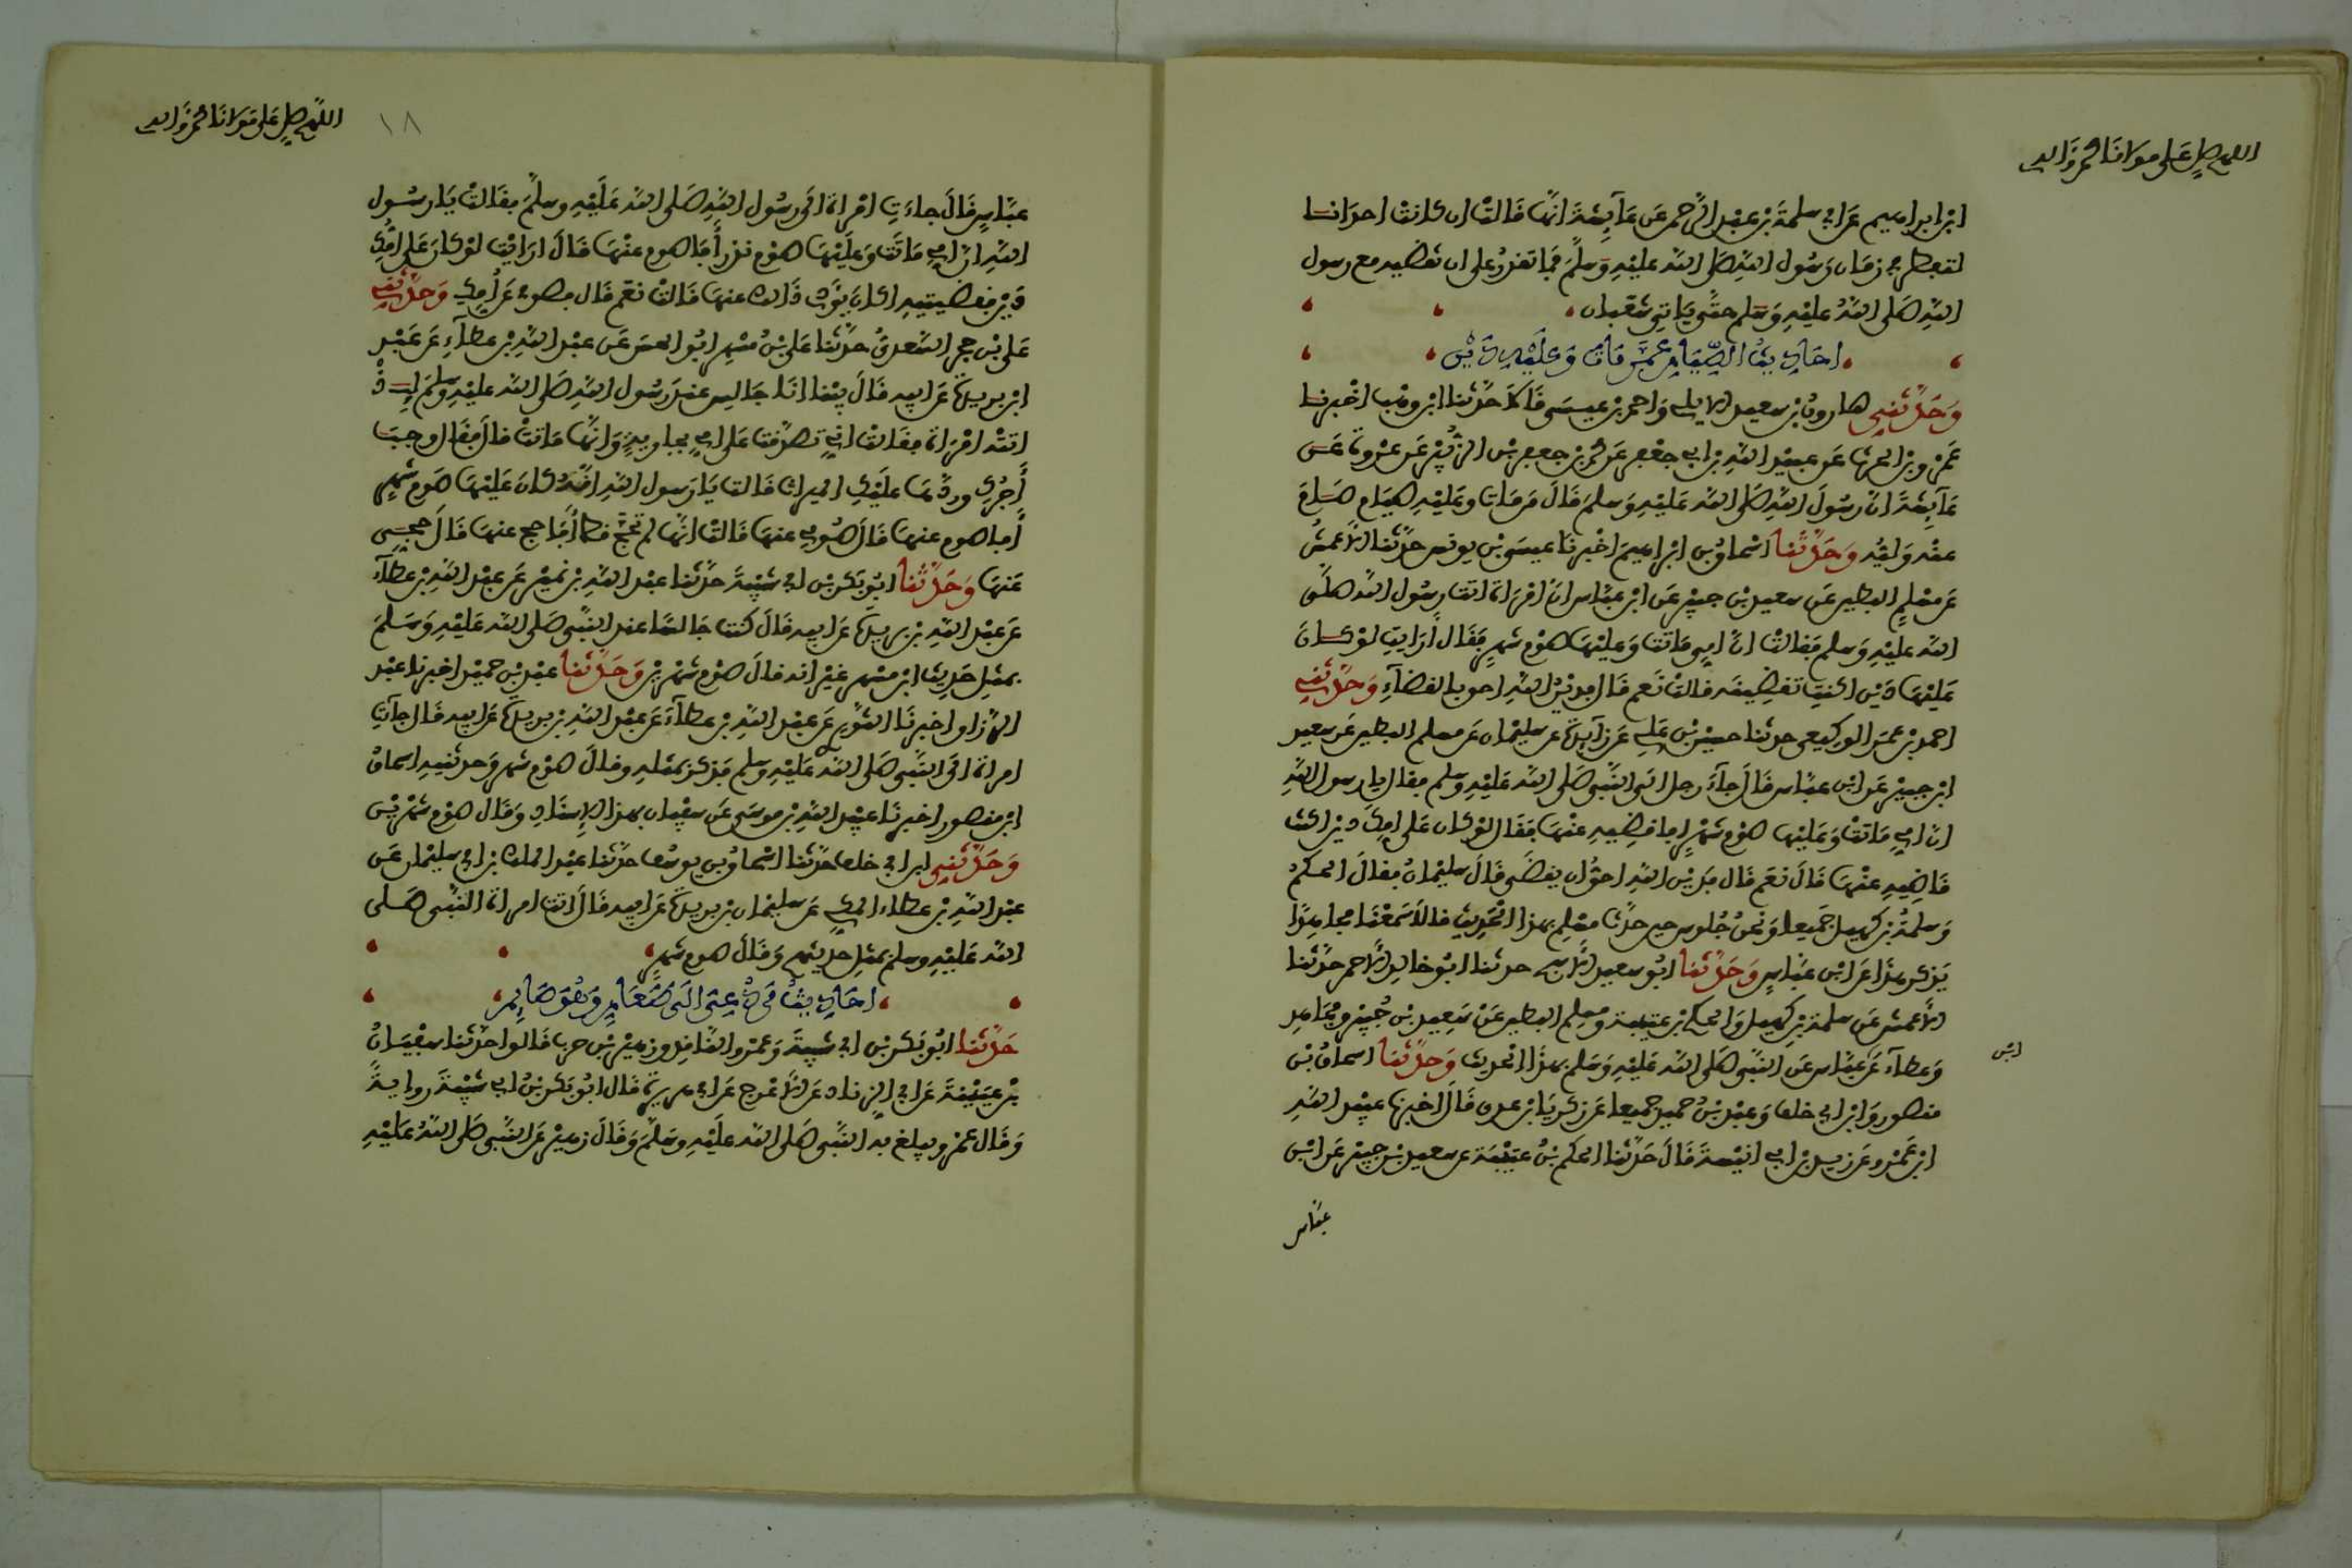 اللهم صل على مولانا محمد وآله
ابن ابراهيم عن ابي سلمة بن عبد الرحمن عن عآيشة انها قالت ان كانت احدانا
لتفطر في زمان رسول الله صلى الله عليه وسلم فما تقدر على ان تقضيه مع رسول
الله صلى الله عليه وسلم حتى ياتي شعبان
احاديث الصيام عمن مات وعليه دين
وحدثني هارون بن سعيد الايلي واحمد بن عيسى قالا حدثنا ابن وهب اخبرنا
عمرو بن الحرث عن عبيد الله بن ابي جعفر عن محمد بن جعفر بن الزبير عن عروة عن
عآيشة ان رسول الله صلى الله عليه وسلم قال من مات وعليه صيام صام
عنه وليه وحدثنا اسحاق بن ابراهيم اخبرنا عيسى بن يونس حدثنا الاعمش
عن مسلم البطين عن سعيد بن جبير عن ابن عباس ان امراة اتت رسول الله صلى
الله عليه وسلم فقالت ان امي ماتت وعليها صوم شهر فقال ارايت لو كان
عليها دين اكنت تقضينه قالت نعم قال فدين الله احق بالقضآء وحدثني
احمد بن عمر الوكيعي حدثنا حسين بن علي عن زآيدة عن سليمان عن مسلم البطين عن سعيد
ابن جبير عن ابن عباس قال جآء رجل الى النبي صلى الله عليه وسلم فقال يا رسول الله
ان امي ماتت وعليها صوم شهر افاقضيه عنها فقال لو كان على امك دين اكنت
قاضيه عنها قال نعم قال فدين الله احق ان يقضى قال سليمان فقال الحكم
وسلمة بن كهيل جميعا ونحن جلوس حين حدث مسلم بهذا الحديث فقالا سمعنا مجاهدا
يذكر هذا عن ابن عباس وحدثنا ابو سعيد الاشج حدثنا ابو خالد الاحمر حدثنا
الاعمش عن سلمة بن كهيل والحكم بن عتيبة ومسلم البطين عن سعيد بن جبير ومجاهد
وعطآء عن عباس عن النبي صلى الله عليه وسلم بهذا الحديث وحدثنا اسحاق بن
ابن
منصور وابن ابي خلف وعبد بن حميد جميعا عن زكريا بن عدي قال اخبرنا عبيد الله
ابن عمرو عن زيد بن ابي انيسة قال حدثنا الحكم بن عتيبة عن سعيد بن جبير عن ابن
عباس
اللهم صل على مولانا محمد وآله
١٨
عباس قال جاءت امراة الى رسول الله صلى الله عليه وسلم فقالت يا رسول
الله ان امي ماتت وعليها صوم نذر أفاصوم عنها قال ارايت لو كان على امك
دين فقضيتيه اكان يؤدي ذالك عنها قالت نعم قال فصومي عن أمك وحدثني
علي بن حجر السعدي حدثنا علي بن مسهر ابو الحسن عن عبد الله بن عطآء عن عبد
ابن بريدة عن ابيه قال بينا انا جالس عند رسول الله صلى الله عليه وسلم اذ
اتته امراة فقالت اني تصدقت على امي بجارية وانها ماتت قال فقال وجب
أجرك وردها عليك الميراث قالت يا رسول الله انه كان عليها صوم شهر
أفاصوم عنها قال صومي عنها قالت انها لم تحج قط أفاحج عنها قال حجي
عنها وحدثنا ابو بكر بن ابي شيبة حدثنا عبد الله بن نمير عن عبد الله بن عطآء
عن عبد الله بن بريدة عن ابيه قال كنت جالسا عند النبي صلى الله عليه وسلم
بمثل حديث ابن مسهر غير انه قال صوم شهرين وحدثنا عبد بن حميد اخبرنا عبد
الرزاق اخبرنا الثوري عن عبد الله بن عطآء عن عبد الله بن بريدة عن ابيه قال جآت
امراة الى النبي صلى الله عليه وسلم فذكر بمثله وقال صوم شهر وحدثنيه اسحاق
ابن منصور اخبرنا عبيد الله بن موسى عن سفيان بهذا الاسناد وقال صوم شهرين
وحدثني ابن ابي خلف حدثنا اسحاق بن يوسف حدثنا عبد الملك بن ابي سليمان عن
عبد الله بن عطاء المكي عن سليمان بن بريدة عن ابيه قال اتت امراة النبي صلى
الله عليه وسلم بمثل حديثهم وقال صوم شهر
احاديث من دعي الى طعام وهو صايم
حدثنا ابو بكر بن ابي شيبة وعمرو الناقد وزهير بن حرب قالوا حدثنا سفيان
بن عيينة عن ابي الزناد عن الاعرج عن ابي هريرة قال ابو بكر بن ابي شيبة رواية
وقال عمرو يبلغ به النبي صلى الله عليه وسلم وقال زهير عن النبي صلى الله عليه